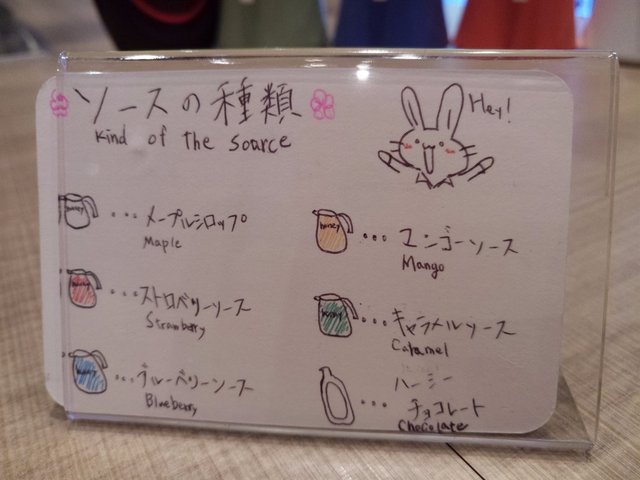 ソースの種類
Kind of the source
Hey!
honey
・・・メープルシロップ
Maple
honey
・・・ストロベリーソース
Strawberry
honey
・・・ブルーベリーソース
Blueberry
honey
・・・マンゴーソース
Mango
honey
・・・キャラメルソース
Calamel
・・・ハーシー
チョコレート
Chocolate